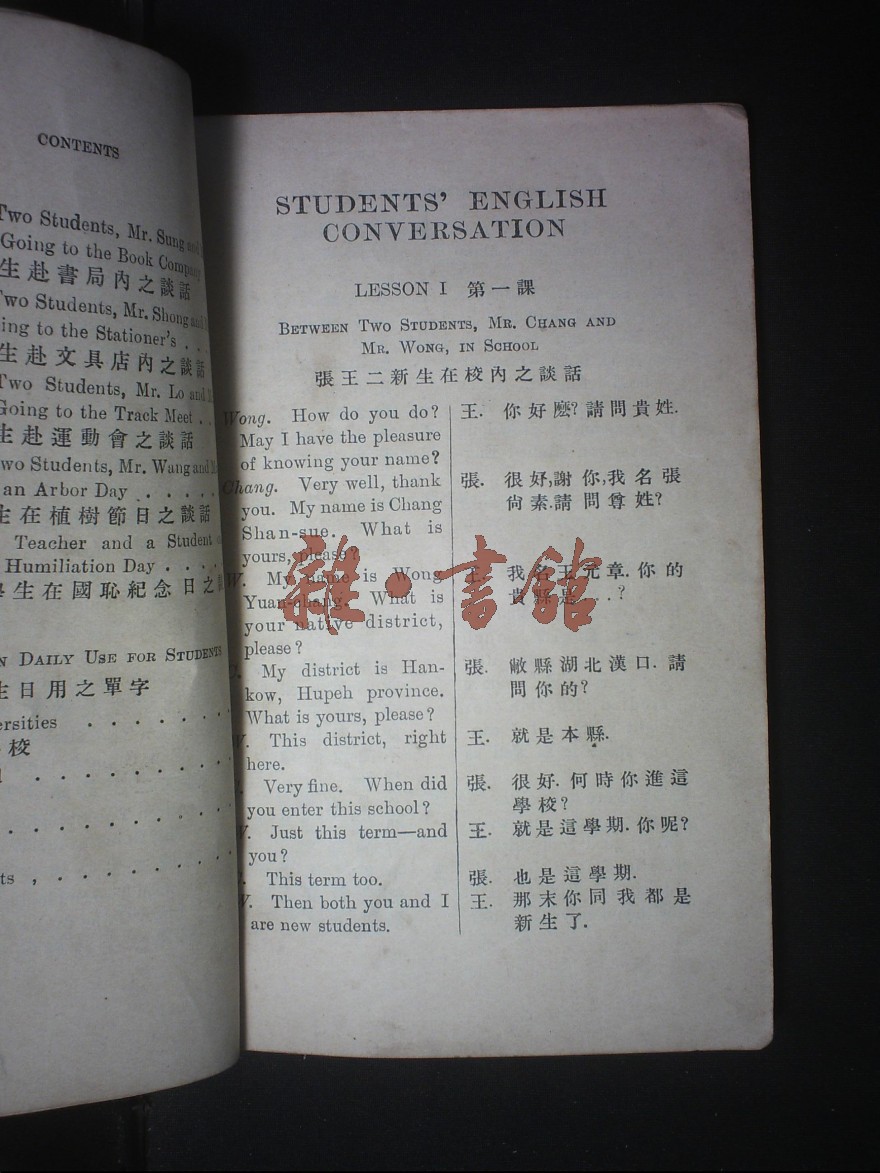 CONTENTS
Two Students, Mr. Sung and
Going to the Book Company
生赴書局內之談話
Two Students, Mr. Shong and
ing to the Stationer's . .
生赴文具店內之談話
Two Students, Mr. Lo and
Going to the Track Meet . .
生赴運動會之談話
Two Students, Mr. Wang and
an Arbor Day . . . . .
生在植樹節日之談話
Teacher and a Student
Humiliation Day . . . .
學生在國恥紀念日之
N DAILY USE FOR STUDENTS
生日用之單字
ersities . . . . . . .
校
STUDENTS' ENGLISH
CONVERSATION
LESSON I 第一課
BETWEEN TWO STUDENTS, MR. CHANG AND
MR. WONG, IN SCHOOL
張王二新生在校內之談話
Wong. How do you do?
May I have the pleasure
of knowing your name?
Chang. Very well, thank
you. My name is Chang
Shan-sue. What is
yours, please?
W. My name is Wong
Yuan-chang. What is
your native district,
please?
My district is Han-
kow, Hupeh province.
What is yours, please?
W. This district, right
here.
Very fine. When did
you enter this school?
W. Just this term—and
you?
This term too.
W. Then both you and I
are new students.
王. 你好麽?請問貴姓.
張. 很好,謝你,我名張
尙素.請問尊姓?
王. 我名王元章.你的
貴縣是...?
張. 敝縣湖北漢口.請
問你的?
王. 就是本縣.
張. 很好.何時你進這
學校?
王. 就是這學期.你呢?
張. 也是這學期.
王. 那末你同我都是
新生了.
雜·書館